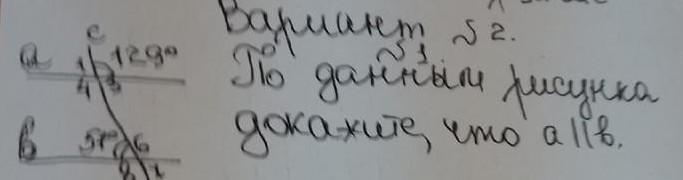 Вариант № 2.
№ 1
По данным рисунка
докажите, что a || b.
c
a 1 129°
4 3
b 6